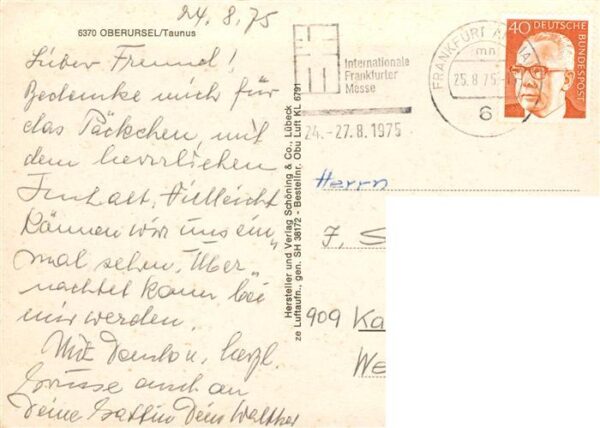 24. 8. 75
6370 OBERURSEL/Taunus
Lieber Freund!
Bedanke mich für
das Päckchen mit
dem herrlichen
Inhalt. Vielleicht
können wir uns ein„
mal sehn. Über„
nachtet kann bei
mir werden.
Mit Dank u. herzl.
Grüsse auch an
Deine Gattin Dein Walther
Hersteller und Verlag Schöning & Co., Lübeck
ze Luftaufn., gen. SH 38172 - Bestellnr. Obu Luft KL 6791
Internationale
Frankfurter
Messe
24.-27.8.1975
FRANKFURT AM MA
mn
25.8.75
6
40 DEUTSCHE BUNDESPOST
Herrn
J. S
909 Ka
We